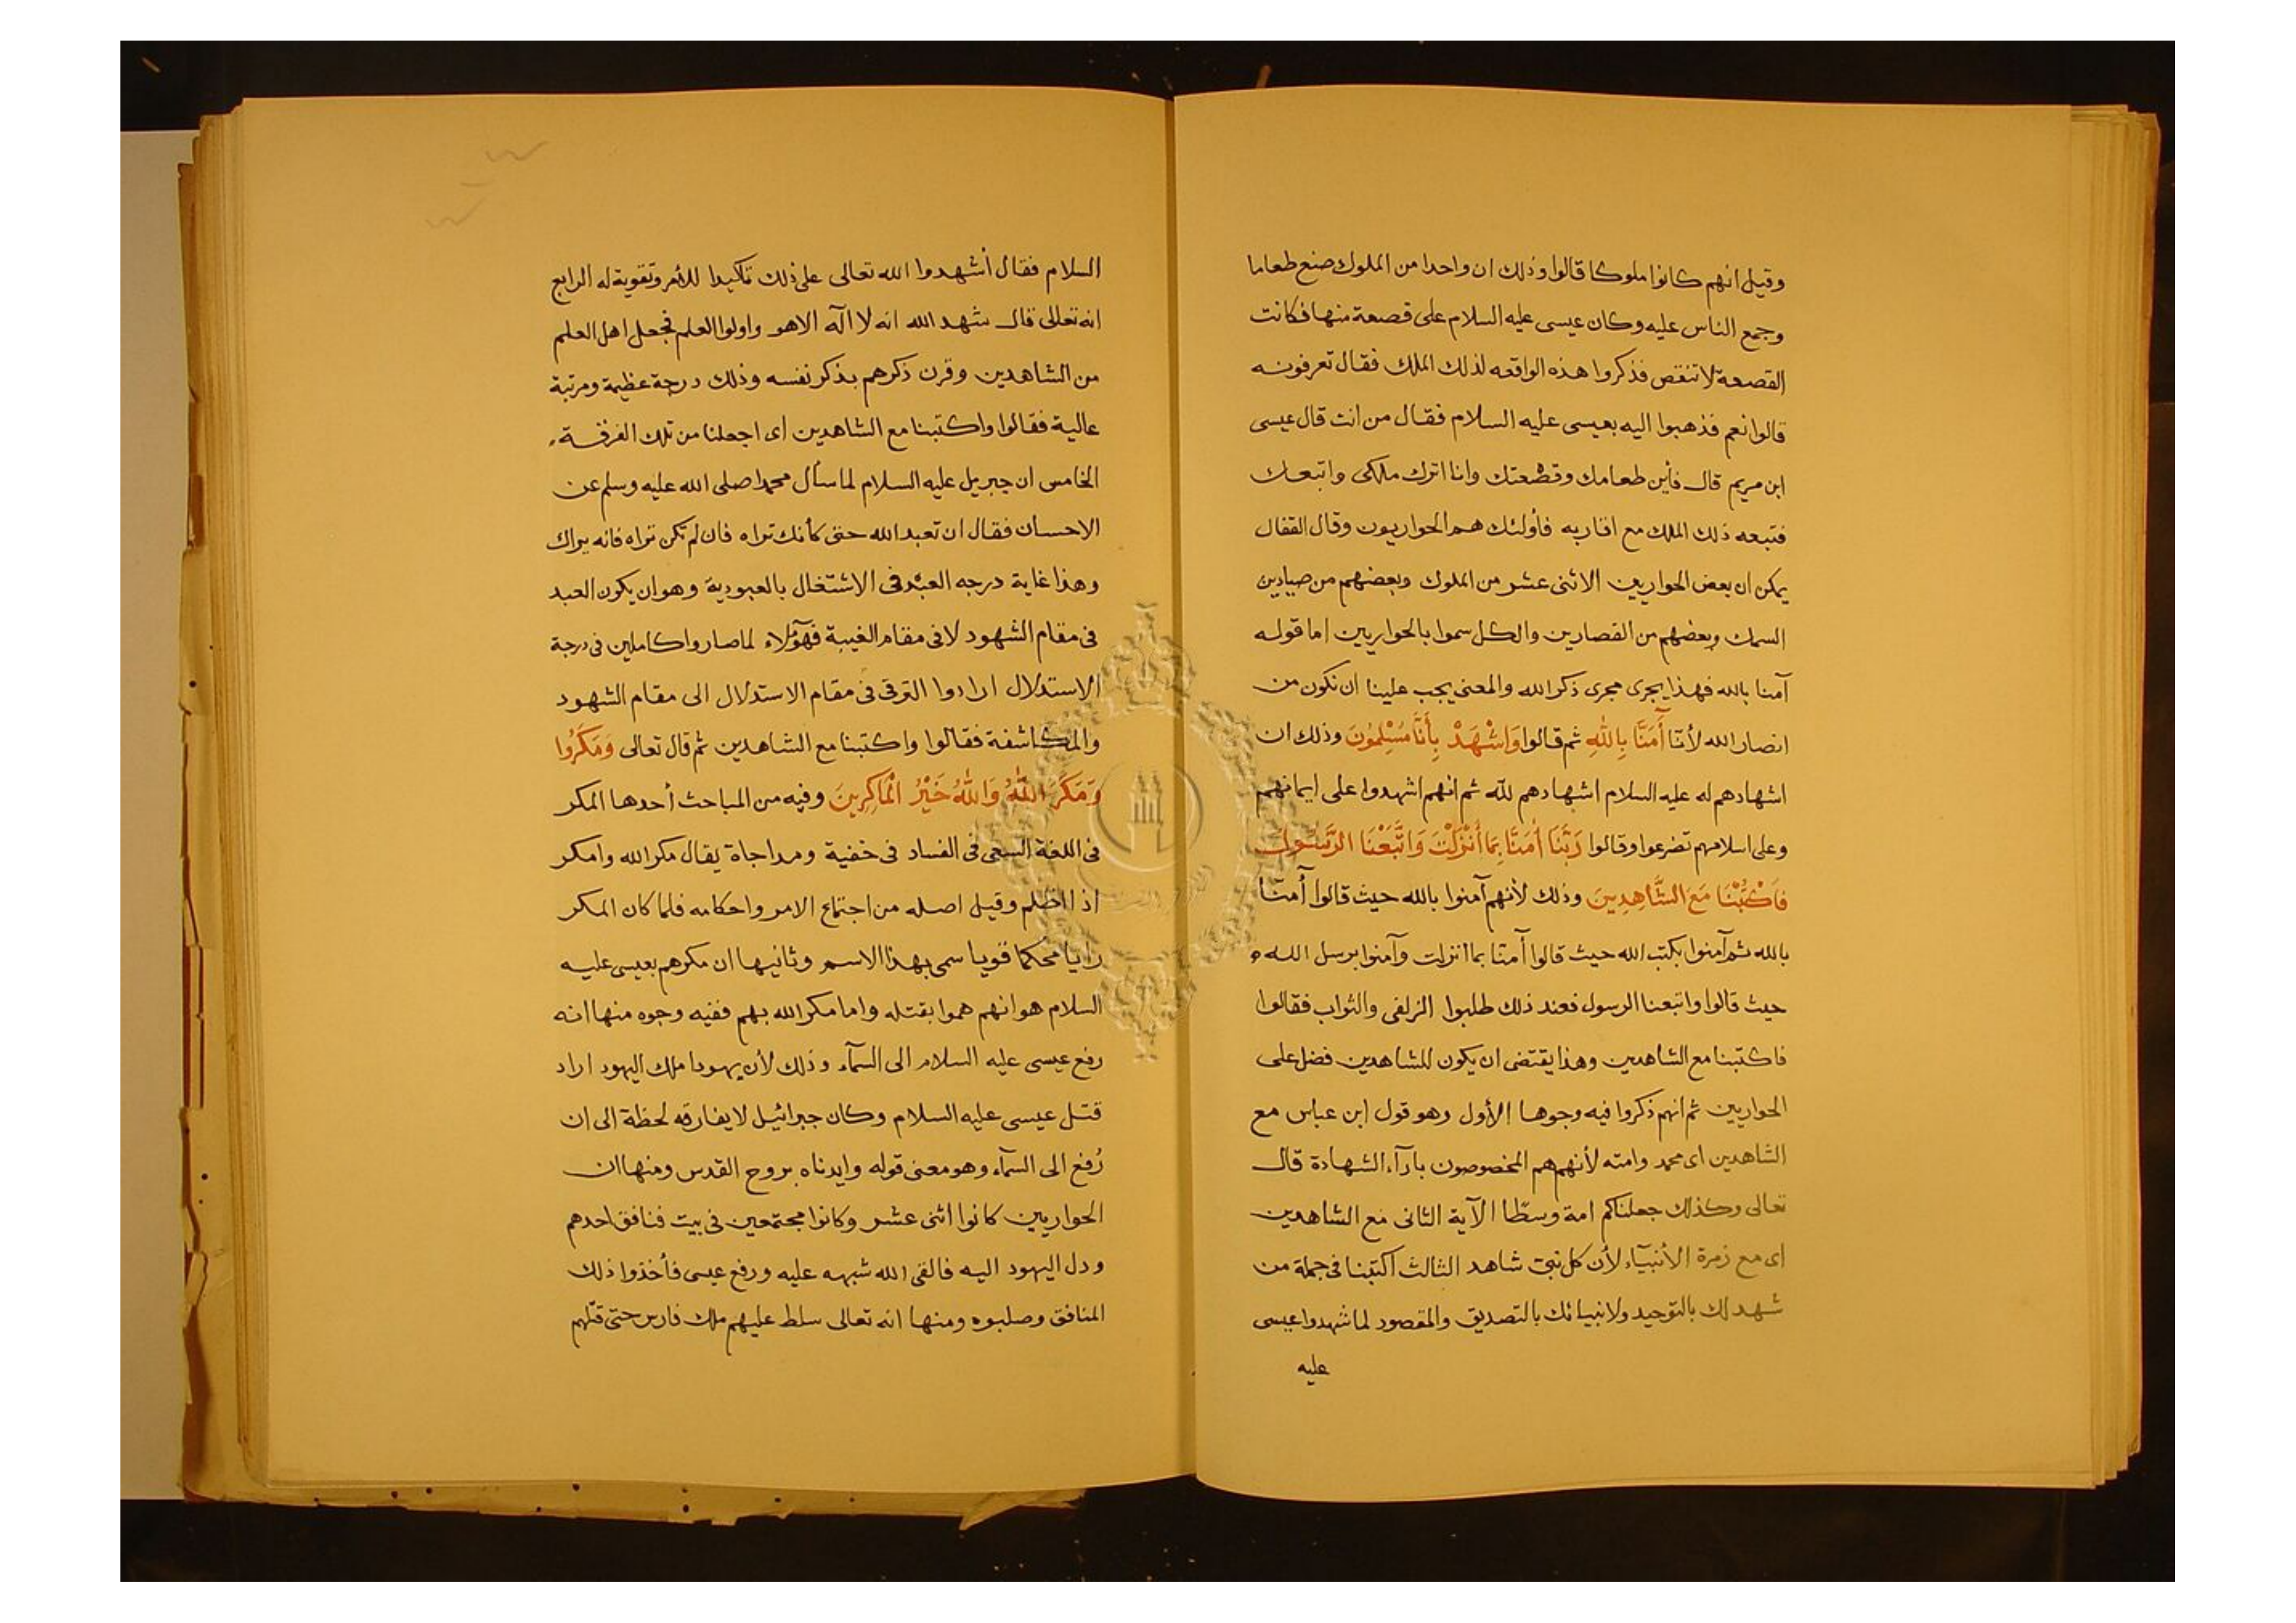 وقيل انهم كانوا ملوكا قالوا وذلك ان واحدا من الملوك صنع طعاما
وجمع الناس عليه وكان عيسى عليه السلام على قصعة منها فكانت
القصعة لا تنقص فذكروا هذه الواقعه لذلك الملك فقال تعرفونه
قالوا نعم فذهبوا اليه بعيسى عليه السلام فقال من انت قال عيسى
ابن مريم قال فأين طعامك وقصعتك وانا اترك ملكى واتبعك
فتبعه ذلك الملك مع اقاربه فأولئك هم الحواريون وقال القفال
يمكن ان بعض الحواريين الاثنى عشر من الملوك وبعضهم من صيادين
السمك وبعضهم من القصارين والكل سموا بالحواريين اما قوله
آمنا بالله فهذا يجرى مجرى ذكر الله والمعنى يجب علينا ان نكون من
انصار الله لأنّا أَمَنَّا بِاللهِ ثم قالوا وَاشْهَدْ بِأَنَّا مُسْلِمُونَ وذلك ان
اشهادهم له عليه السلام اشهادهم للّه ثم انهم اشهدوا على ايمانهم
وعلى اسلامهم تضرعوا وقالوا رَبَّنَا أَمَنَّا بِمَا أَنْزَلْتَ وَاتَّبَعْنَا الرَّسُولَ
فَاكْتُبْنَا مَعَ الشَّاهِدِينَ وذلك لأنهم آمنوا بالله حيث قالوا أمنّا
بالله ثم آمنوا بكتب الله حيث قالوا آمنا بما انزلت وآمنوا برسل الله
حيث قالوا واتبعنا الرسول فعند ذلك طلبوا الزلفى والثواب فقالوا
فاكتبنا مع الشاهدين وهذا يقتضى ان يكون للشاهدين فضل على
الحواريين ثم انهم ذكروا فيه وجوها الأول وهو قول ابن عباس مع
الشاهدين اى محمد وامته لأنهم هم المخصوصون بادآء الشهادة قال
تعالى وكذلك جعلناكم امة وسطّا الآية الثانى مع الشاهدين
اى مع زمرة الأنبيآء لأن كل نبىّ شاهد الثالث اكتبنا فى جملة من
شهد لك بالتوحيد ولانبيائك بالتصديق والمقصود لما شهدوا عيسى
عليه
السلام فقال أشهدوا الله تعالى على ذلك تأكيدا للأمر وتقوية له الرابع
انه تعالى قال شهد الله انه لا اآله الا هو واولوا العلم فجعل اهل العلم
من الشاهدين وقرن ذكرهم بذكر نفسه وذلك درجة عظيمة ومرتبة
عالية فقالوا واكتبنا مع الشاهدين اى اجعلنا من تلك الفرقة
الخامس ان جبريل عليه السلام لما سأل محمدا صلى الله عليه وسلم عن
الاحسان فقال ان تعبد الله حتى كأنك تراه فان لم تكن تراه فانه يراك
وهذا غاية درجه العبد فى الاشتغال بالعبودية وهو ان يكون العبد
فى مقام الشهود لا فى مقام الغيبة فهؤلآء لما صاروا كاملين فى درجة
الاستدلال ارادوا الترقى فى مقام الاستدلال الى مقام الشهود
والمكاشفة فقالوا واكتبنا مع الشاهدين ثم قال تعالى وَمَكَرُوا
وَمَكَرَ اللهُ وَاللهُ خَيْرُ الْمَاكِرِينَ وفيه من المباحث أحدها المكر
فى اللغة السعى فى الفساد فى خفية ومداجاة يقال مكر الله وامكر
اذا اظلم وقيل اصله من اجتماع الامر واحكامه فلما كان المكر
رايا محكما قويا سمى بهذا الاسم وثانيها ان مكرهم بعيسى عليه
السلام هو انهم هموا بقتله واما مكر الله بهم ففيه وجوه منها انه
رفع عيسى عليه السلام الى السمآء وذلك لأن يهودا ملك اليهود اراد
قتل عيسى عليه السلام وكان جبرائيل لا يفارقه لحظة الى ان
رُفع الى السمآء وهو معنى قوله وايدناه بروح القدس ومنها ان
الحواريين كانوا اثنى عشر وكانوا مجتمعين فى بيت فنافق احدهم
ودل اليهود اليه فالقى الله شبهه عليه ورفع عيسى فأخذوا ذلك
المنافق وصلبوه ومنها انه تعالى سلط عليهم ملك فارس حتى قتلهم